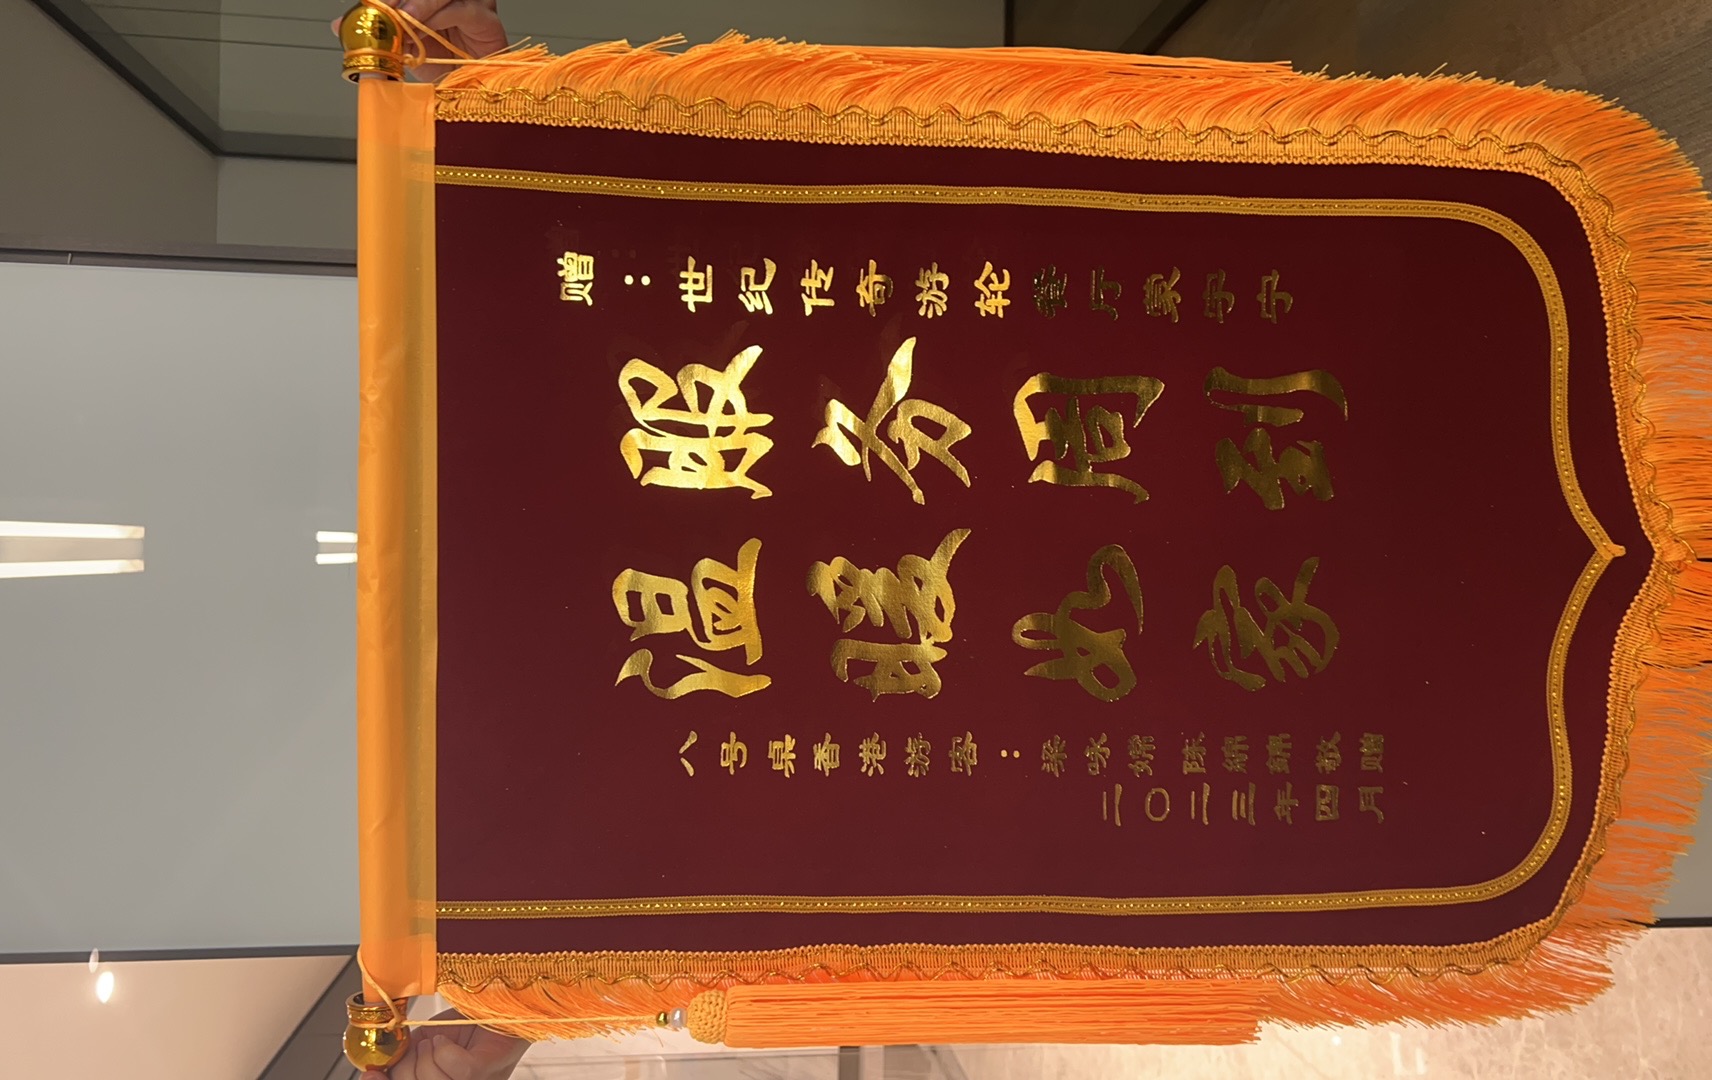 赠：世纪传奇游轮餐厅宇宁
服务周到
温暖如家
八号桌香港游客：梁陈敬赠
二〇二三年四月